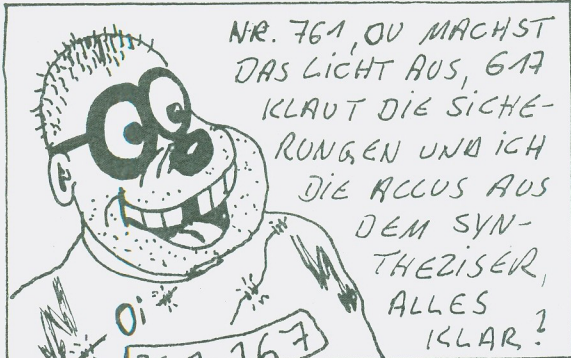 NR. 761, DU MACHST
DAS LICHT AUS, 617
KLAUT DIE SICHE-
RUNGEN UND ICH
DIE ACCUS AUS
DEM SYN-
THEZISER,
ALLES
KLAR?
Oi
767